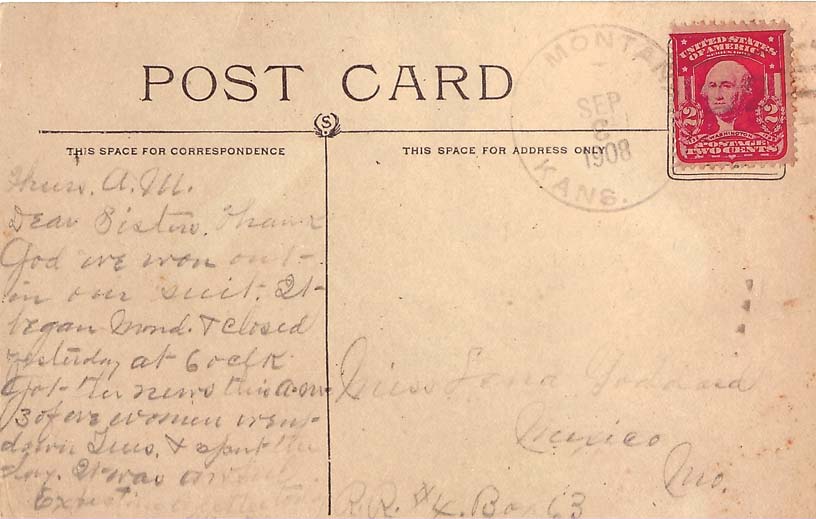 POST CARD
THIS SPACE FOR CORRESPONDENCE
THIS SPACE FOR ADDRESS ONLY
S
MONTAN
SEP
1908
KANS.
UNITED STATES
OF AMERICA
2 WASHINGTON 2
POSTAGE
TWO CENTS
Thurs. A.M.
Dear Sisters. Thank
God we won out
in our suit. It
began Mond. & closed
yesterday at 6 oclk
Got the news this a.m.
3 of we women went
down Tues. & spent the
day. It was awful
Miss Goddard
Mexico
Mo.
R.R. #4. Box 63